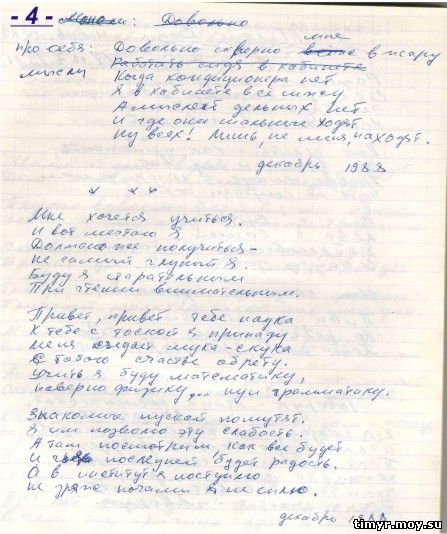 - 4 -
Довольно
мне
про себя: Довольно скверно всяко в жару
мысли Работать сидя в кабинете
Когда кондиционера нет
Я в кабинете все сижу
А мыслей дельных нет
И где они шальные ходят
Ну всех! Лишь, не меня, находят.
декабрь 1988
Мне хочется учиться.
И вот мечтаю я
Должно же получиться -
Не самый глупый я.
Буду я старательным
При чтении внимательным.
Привет, привет тебе наука
К тебе с тоской я припаду
Меня съедает мука-скука
С тобою счастье обрету.
Учить я буду математику,
наверно физику... ну и грамматику.
Знакомые пускай пошутят.
Я им позволю эту слабость.
А там посмотрим как все будет
И чья последней будет радость.
А в институт я поступлю
Не зря же ночами я не сплю.
декабрь 1988
timyr.moy.su